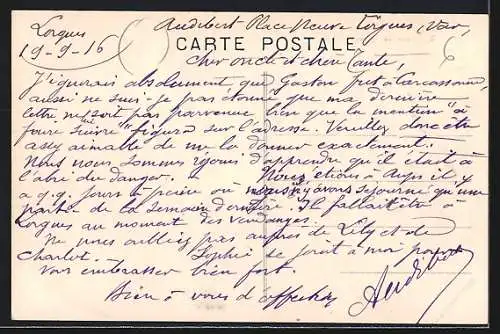 Lorgues
19-9-16
Audibert Place Neuve Lorgues, Var,
CARTE POSTALE
Cher oncle et chère tante,
J'ignorais absolument que Gaston fut à Carcassonne,
aussi ne suis-je pas étonné que ma dernière
lettre ne soit pas parvenue bien que la mention "à
faire suivre" figura sur l'adresse. Veuillez donc être
assez aimable de me la donner exactement.
Nous nous sommes réjouis d'apprendre qu'il était à
l'abri du danger. Nous étions à Aups il y
a q.q. jours à peine où nous y avons séjourné qu'une
partie de la semaine dernière. Il fallait être à
Lorgues au moment des vendanges.
Ne nous oubliez pas auprès de Lily et de
Charlot. Sophie se joint à moi pour
vous embrasser bien fort.
Bien à vous d'affection
Audibert